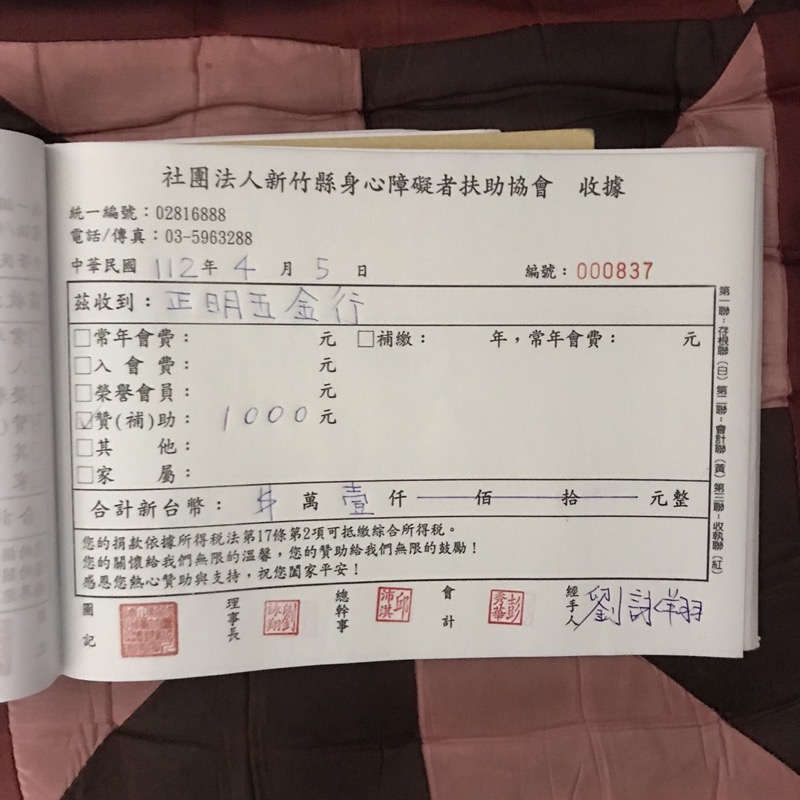 社團法人新竹縣身心障礙者扶助協會 收據
統一編號：02816888
電話/傳真：03-5963288
中華民國 112 年 4 月 5 日 編號：000837
茲收到：正明五金行
□常年會費： 元 □補繳： 年，常年會費： 元
□入會費： 元
□榮譽會員： 元
☑贊(補)助：1000元
□其 他：
□家 屬：
合計新台幣：$ 萬 壹 仟 佰 拾 元整
您的捐款依據所得稅法第17條第2項可抵繳綜合所得稅。
您的關懷給我們無限的溫馨，您的贊助給我們無限的鼓勵！
感恩您熱心贊助與支持，祝您闔家平安！
圖記 理事長 劉詠翔 總幹事 邱沛淇 會計 彭秀華 經手人 劉詠翔
第一聯：存根聯（白）第二聯：會計聯（黃）第三聯：收執聯（紅）